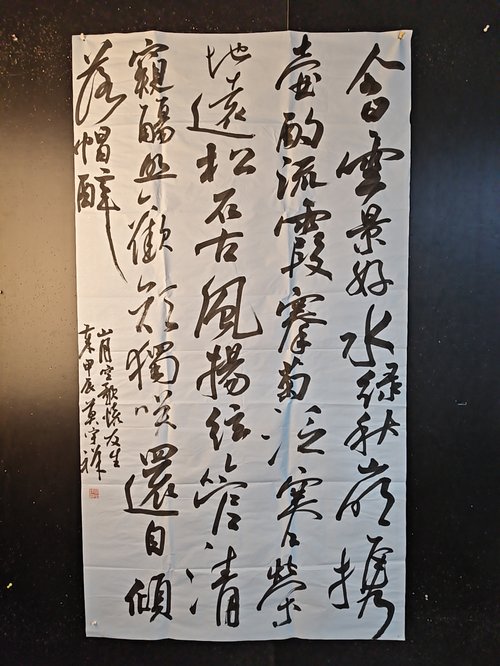 今日雲景好水綠秋山明攜
壺酌流霞搴菊泛寒榮
地遠松石古風揚絃管清
窺觴照歡顏獨咲還自傾
落帽醉
山月空歌懷友生
甲辰莫祥